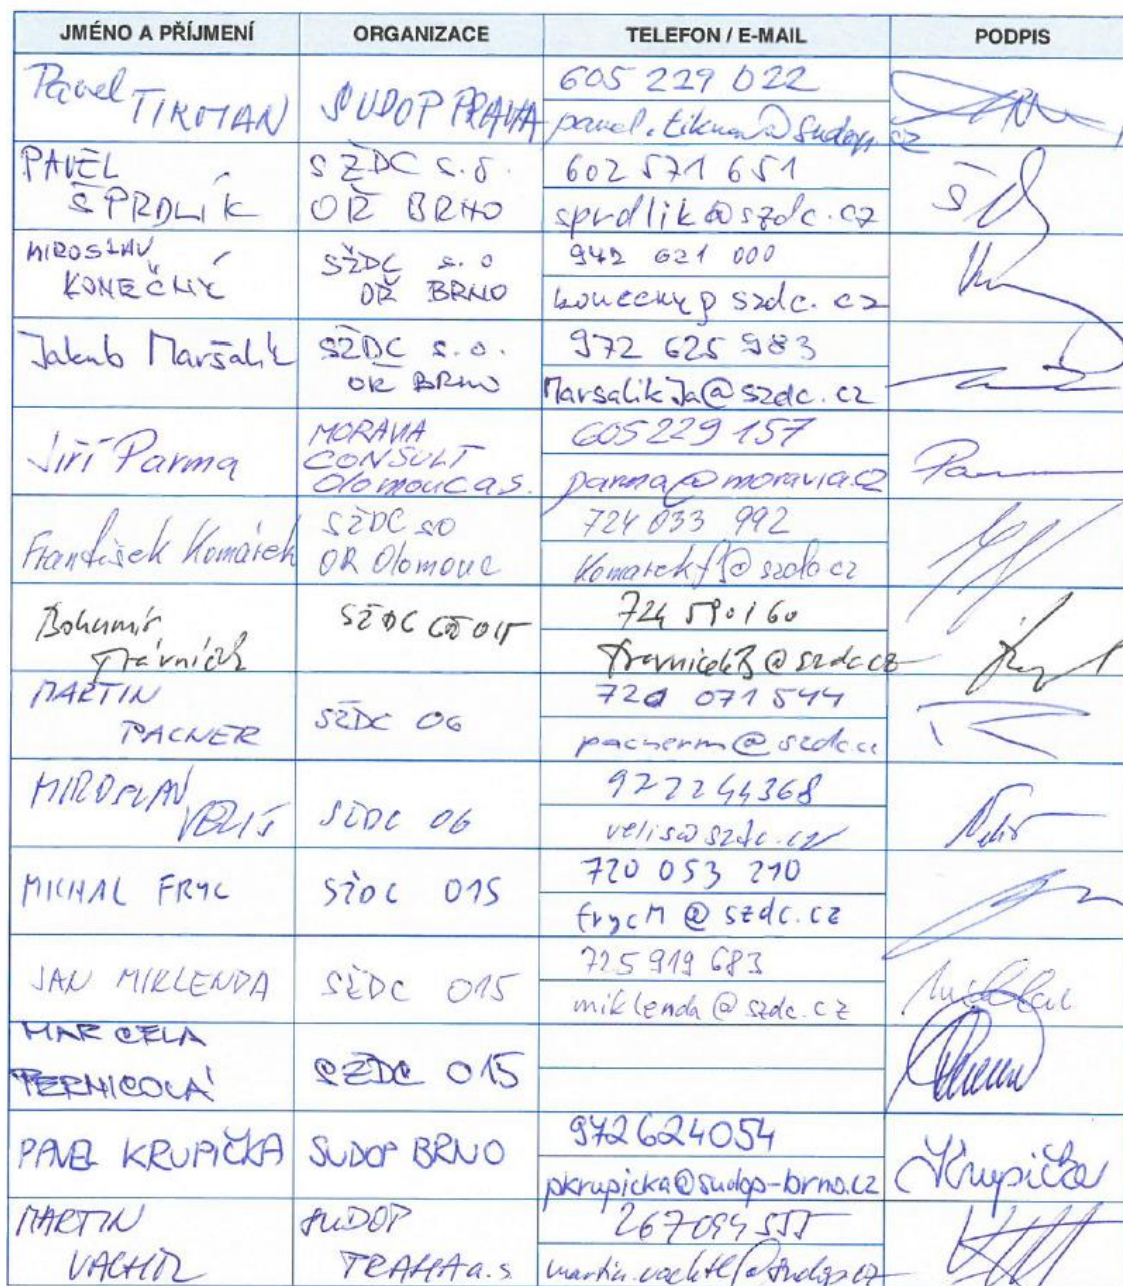 JMÉNO A PŘÍJMENÍ ORGANIZACE TELEFON / E-MAIL PODPIS
Pavel TIKMAN SUDOP PRAHA 605 229 022
pavel.tikman@sudop.cz
PAVEL ŠPRDLÍK SŽDC s.o. OŘ BRNO 602 571 651
sprdlik@szdc.cz
MIROSLAV KONEČNÝ SŽDC s.o OŘ BRNO 621 000
konecny@szdc.cz
Jakub Maršalík SŽDC s.o. OŘ BRNO 972 625 983
MarsalikJa@szdc.cz
Jiří Parma MORAVIA CONSULT Olomouc a.s. 605 229 157
parma@moravia.cz
František Komárek SŽDC so OŘ Olomouc 724 033 992
Komarekf@szdc.cz
Bohumír Trávníček SŽDC 724 590 160
TravnicekB@szdc.cz
MARTIN PACNER SŽDC O6 071 544
pacnerm@szdc.cz
MIROSLAV VELIŠ SŽDC O6 244368
velis@szdc.cz
MICHAL FRYC SŽDC O15 720 053 210
frycM@szdc.cz
JAN MIKLENDA SŽDC O15 725 919 683
miklenda@szdc.cz
MARCELA PERNICOVÁ SŽDC O15
PAVEL KRUPIČKA SUDOP BRNO 972624054
pkrupicka@sudop-brno.cz Krupička
MARTIN VACHTL SUDOP PRAHA a.s 267094
martin.vachtl@sudop.cz